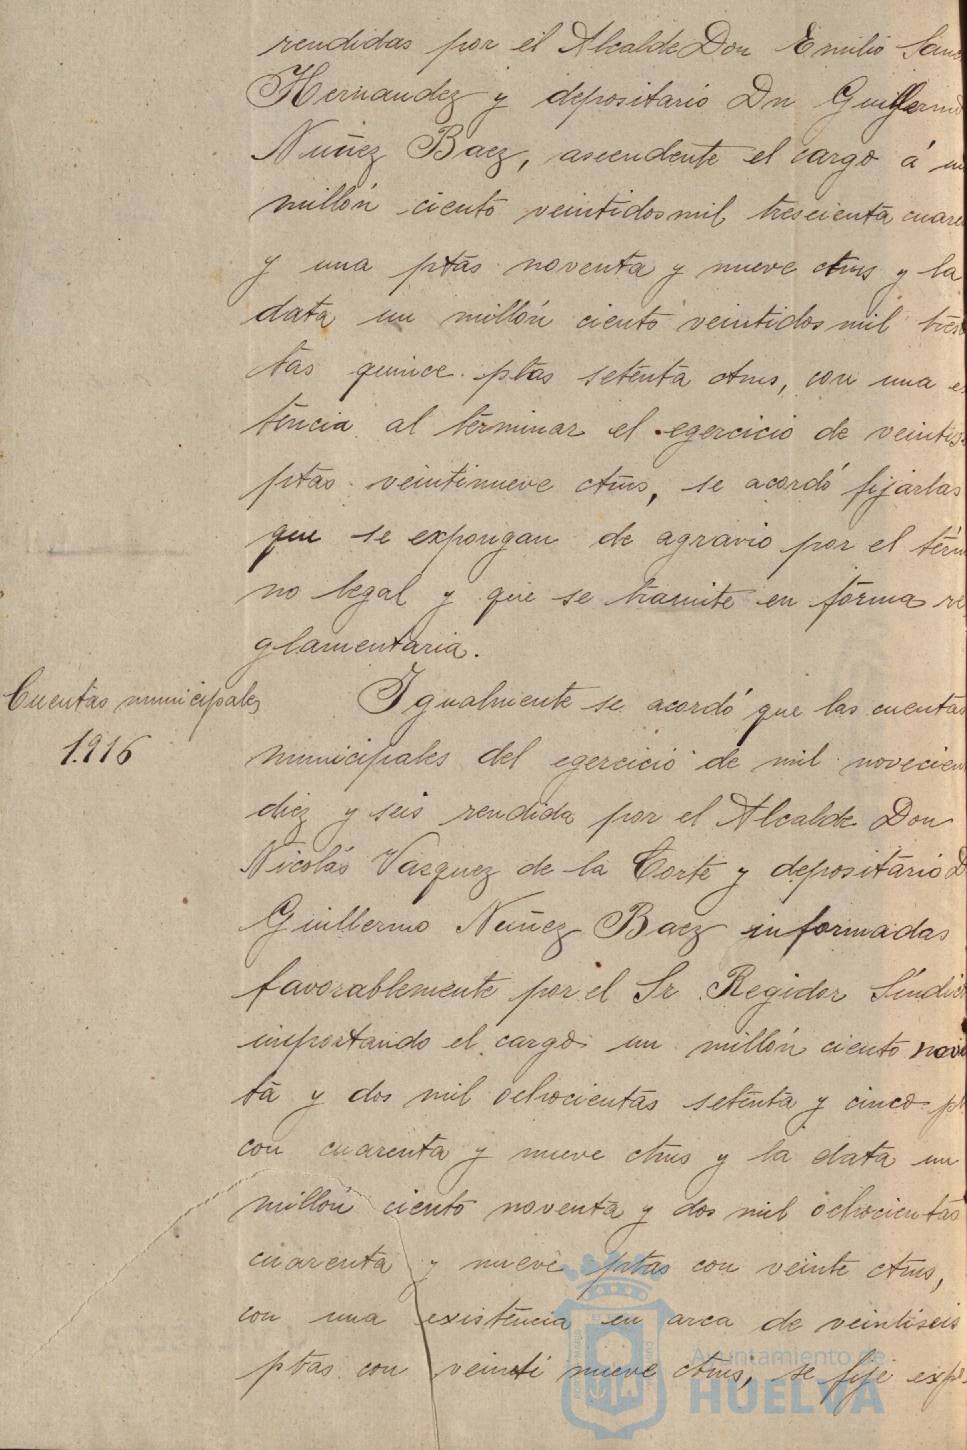 rendidas por el Alcalde Don Emilio
Hernandez y depositario Dn Guillermo
Nuñez Baez, ascendente el cargo á un
millón ciento veintidos mil trescienta cuare
y una ptas noventa y nueve ctms y la
data un millón ciento veintidos mil tres
tas quince ptas setenta ctms, con una e
tencia al terminar el egercicio de veintis
ptas veintinueve ctms, se acordó fijarlas
que se expongan de agravio por el térm
no legal y que se tramite en forma re
glamentaria.
Cuentas municipales
1.916
Igualmente se acordó que las cuentas
municipales del egercicio de mil novecien
diez y seis rendida por el Alcalde Don
Nicolás Vazquez de la Corte y depositario D
Guillermo Nuñez Baez informadas
favorablemente por el Sr Regidor Síndico
importando el cargo un millón ciento noven
ta y dos mil ochocientas setenta y cinco pt
con cuarenta y nueve ctms y la data un
millón ciento noventa y dos mil ochocientas
cuarenta y nueve ptas con veinte ctms,
con una existencia en arca de veintiseis
ptas con veinti nueve ctms, se fije exp
Ayuntamiento de
HUELVA